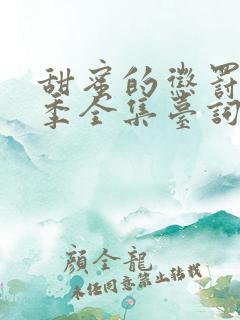 甜蜜的懲罰
季全集臺詞
顏全龍
未任同意禁止轉載